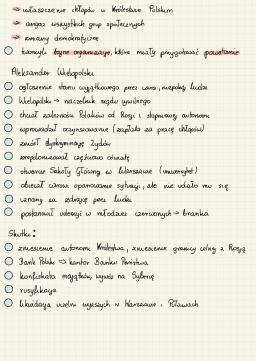 → uwłaszczenie chłopów w Królestwie Polskim
→ angaż wszystkich grup społecznych
→ zmiany demokratyczne
tworzyli tajne organizacje, które miały przygotować powstanie
Aleksander Wielopolski
ogłoszenie stanu wyjątkowego przez cara, niepokój ludzi
Wielopolski → naczelnik rządu cywilnego
chciał zależności Polaków od Rosji i stopniowej autonomii
wprowadził oczynszowanie (zapłata za pracę chłopów)
zniósł dyskryminację Żydów
zrepolonizował częściowo oświatę
otwarcie Szkoły Głównej w Warszawie (uniwersytet)
obiecał carowi opanowanie sytuacji, ale nie udało mu się
uznany za zdrajcę przez ludzi
postanowił uderzyć w młodzież czerwonych → branka
Skutki:
zniesienie autonomii Królestwa, zniesienie granicy celnej z Rosją
Bank Polski → kantor Banku Państwa
konfiskata majątków, wywóz na Syberię
rusyfikacja
likwidacja uczelni wyższych w Warszawie i Puławach